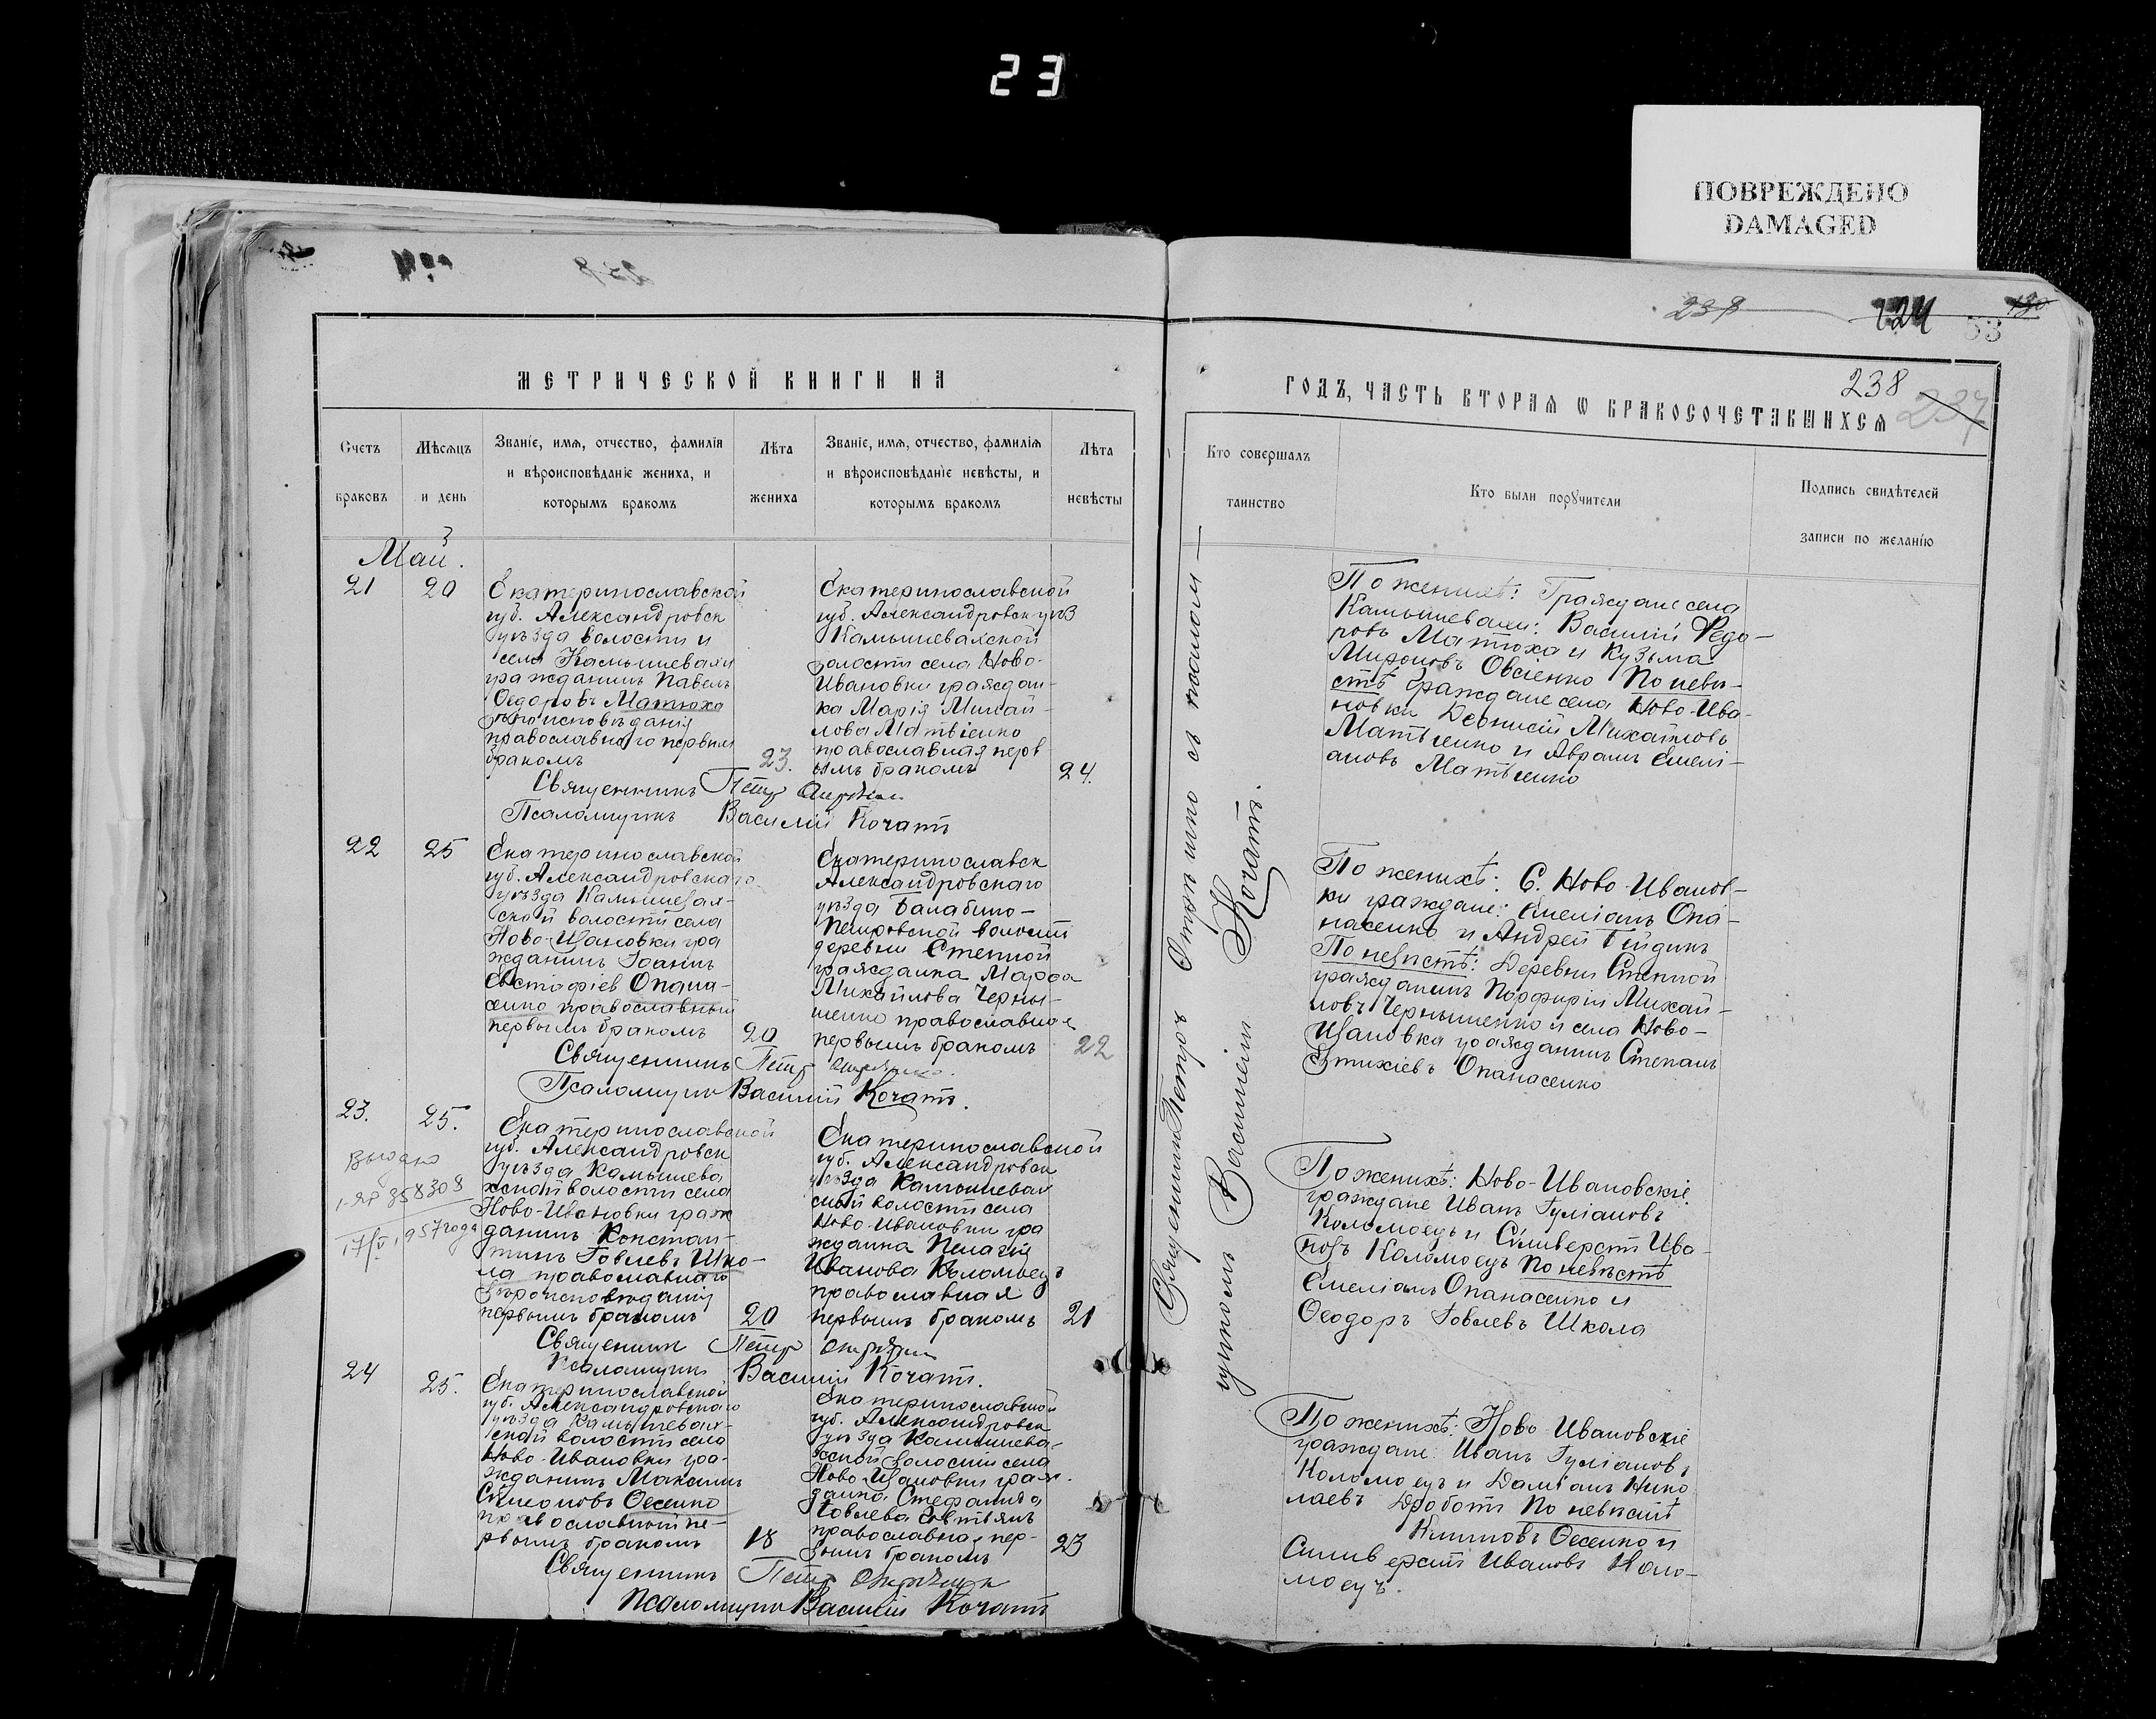 23
ПОВРЕЖДЕНО
DAMAGED
238
224
53
МЕТРИЧЕСКОЙ КНИГИ НА
ГОДЪ, ЧАСТЬ ВТОРАЯ Ѡ БРАКОСОЧЕТАВШИХСЯ
238
237
Счетъ браковъ
Мѣсяцъ и день
Званіе, имя, отчество, фамилія
и вѣроисповѣданіе жениха, и
которымъ бракомъ
Лѣта жениха
Званіе, имя, отчество, фамилія
и вѣроисповѣданіе невѣсты, и
которымъ бракомъ
Лѣта невѣсты
Кто совершалъ таинство
Кто были поручители
Подпись свидѣтелей
записи по желанію
Май.
21
20
Екатеринославской
губ. Александровск
уѣзда волости и
села Камышевахи
гражданинъ Павелъ
Ѳедоровъ Матюха
вѣроисповѣданія
православнаго первымъ
бракомъ
23.
Екатеринославской
губ. Александровск уѣз
Камышевахской
волости села Ново-
Ивановки граждан-
ка Марія Михай-
лова Матвіенко
православная перв
ымъ бракомъ
24.
Священникъ Петр
Псаломщикъ Василій Кочатъ
По женихѣ: Граждане села
Камышевахи: Василій Ѳедо-
ровъ Матюха и Кузьма
Мироновъ Овсіенко По невѣ-
стѣ Граждане села Ново-Ива-
новки Деонисій Михайловъ
Матвіенко и Аврамъ Емелі-
ановъ Матвіенко
22
25
Екатеринославской
губ. Александровскаго
уѣзда Камышевах-
ской волости села
Ново-Ивановки гра
жданинъ Іоаннъ
Евстафіев Опана-
сенко православный
первымъ бракомъ
20
Екатеринославск
Александровскаго
уѣзда Балабино-
Петровской волости
деревни Степной
гражданка Марфа
Михайлова Черны-
шенко православная
первымъ бракомъ
22
Священникъ Петр
Псаломщик Василій Кочатъ.
По женихѣ: С. Ново-Иванов-
ки граждане: Емеліанъ Опа-
насенко и Андрей
По невѣстѣ: Деревни Степной
гражданинъ Порфирій Михай-
ловъ Чернышенко и села Ново-
Ивановка гражданинъ Степанъ
Опанасенко
23.
25.
Выдано
358308
1957 года
Екатеринославской
губ. Александровск
уѣзда Камышева
хской волости села
Ново-Ивановки граж
данинъ Констан-
тинъ Іовлевъ Шко-
ла православнаго
вѣроисповѣданія
первымъ бракомъ
20
Екатеринославской
губ. Александровск
уѣзда Камышевах
ской волости села
Ново-Ивановки гра
жданка Пелагія
Иванова Коломоецъ
православная
первымъ бракомъ
21
Священник Петр
Псаломщикъ Василій Кочатъ.
По женихѣ: Ново-Ивановскіе
граждане Иванъ Гуліановъ
Коломоецъ и Сильверстъ Ива-
новъ Коломоецъ По невѣстѣ
Емеліанъ Опанасенко и
Ѳеодоръ Іовлевъ Школа
24
25.
Екатеринославской
губ. Александровскаго
уѣзда Камышевах-
ской волости села
Ново-Ивановки гра-
жданинъ Максимъ
Симеоновъ Овсенко
православный пе-
рвымъ бракомъ
18
Екатеринославской
губ. Александровск
уѣзда Камышева-
хской волости села
Ново-Ивановки граж.
данка Стефанида
Іовлева
православная пер-
вымъ бракомъ
23
Священникъ Петр
Псаломщик Василій Кочатъ
По женихѣ: Ново-Ивановскіе
граждане: Иванъ Гуліановъ
Коломоецъ и Даміанъ Нико
лаевъ Дроботъ По невѣстѣ
Климовъ Овсенко и
Сильверстъ Ивановъ Коло-
моецъ.
Священникъ Петръ
съ псалом-
щикомъ Василіемъ Кочатъ.